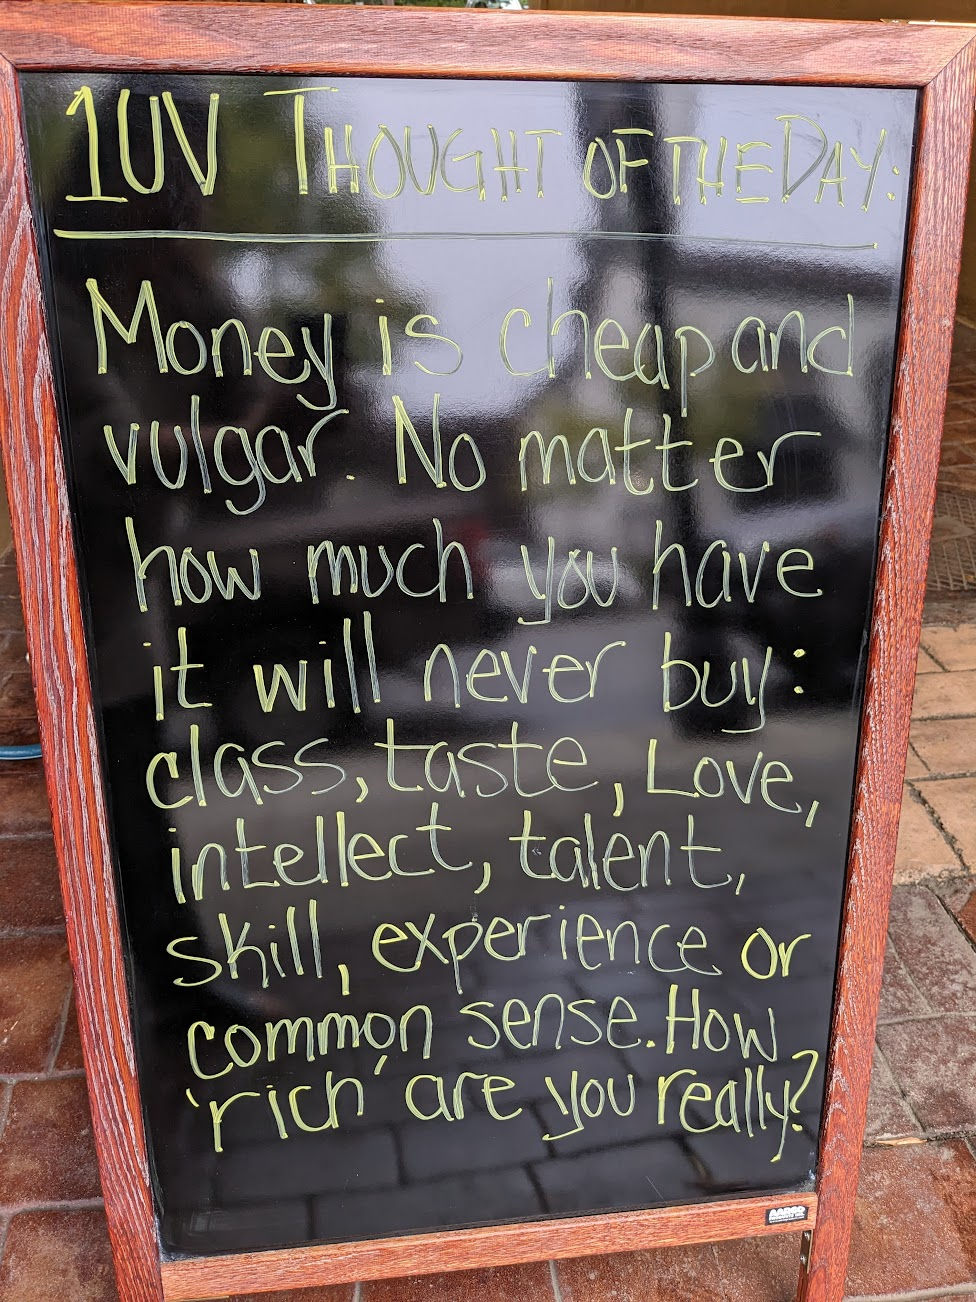 1UV THOUGHT OF THE DAY:
Money is cheap and
vulgar. No matter
how much you have
it will never buy:
class, taste, Love,
intellect, talent,
skill, experience or
common sense. How
'rich' are you really?
AARCO